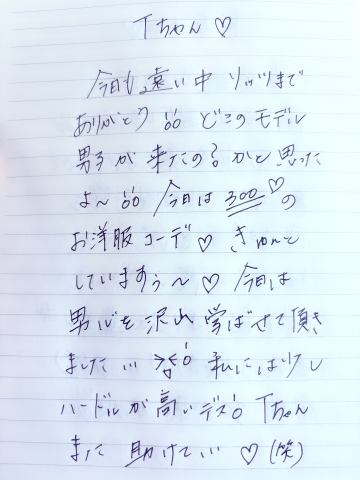 Tちゃん♡
今日も遠い中 リッツまで
ありがとう!! どこのモデル
男子が来たの?かと思った
よ〜!! 今日は300♡の
お洋服コーデ♡ きゅんと
していますぅ〜♡ 今日は
男心を沢山学ばせて頂き
ました… 私には少し
ハードルが高いデス! Tちゃん
また助けて…♡(笑)